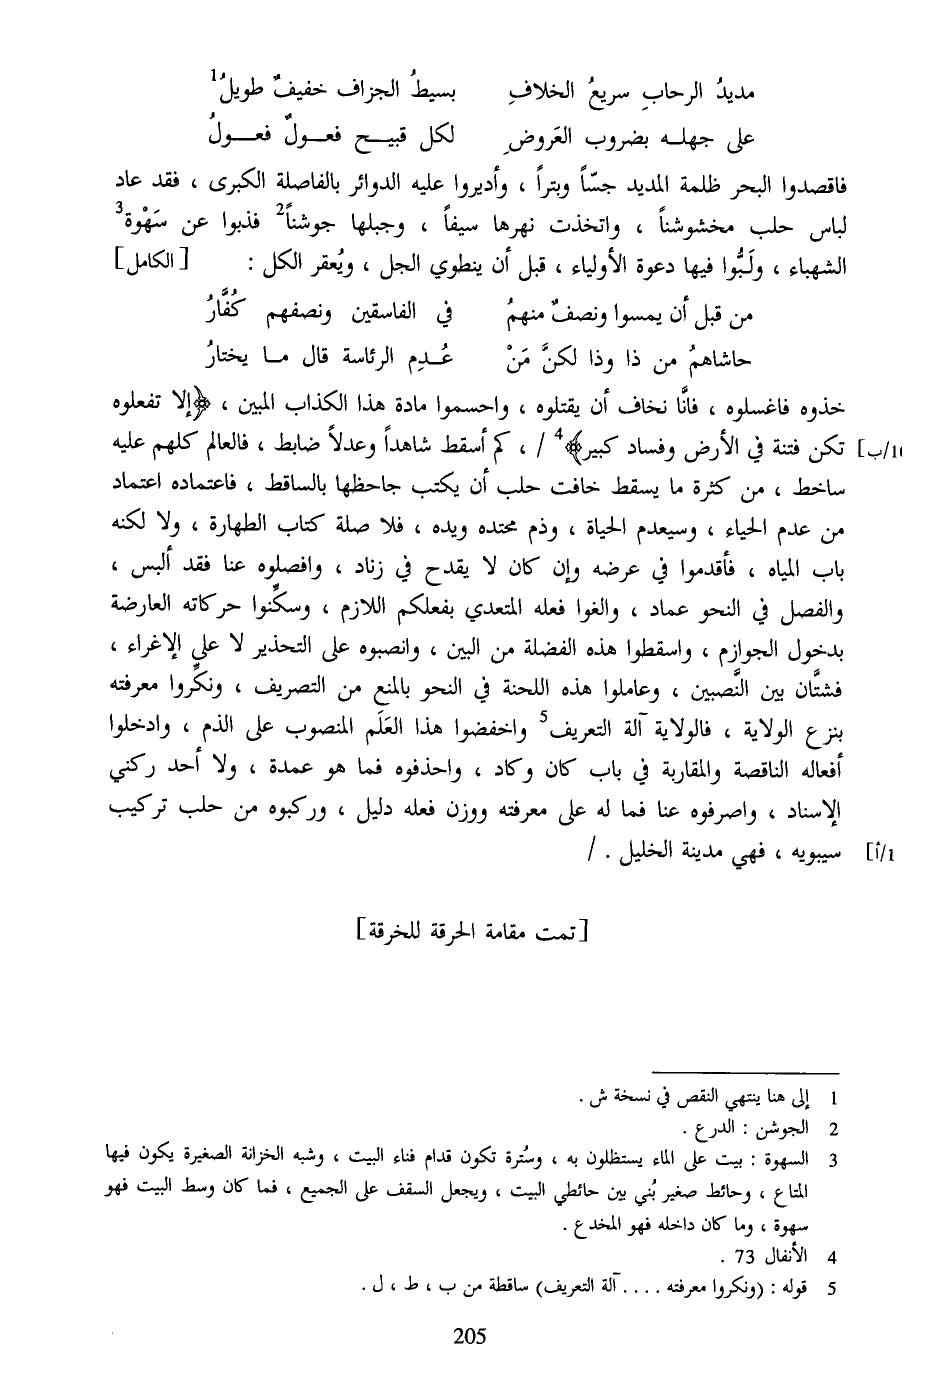 مديدُ الرحابِ سريعُ الخلافِ بسيطُ الجزاف خفيفٌ طويلُ1
على جهلـه بضروب العَروضِ لكل قبيـــح فعـــولٌ فعـــولُ
فاقصدوا البحر ظلمة المديد جسّاً وبتراً ، وأديروا عليه الدوائر بالفاصلة الكبرى ، فقد عاد
لباس حلب مخشوشناً ، واتخذت نهرها سيفاً ، وجبلها جوشناً2 فذبوا عن سَهْوة3
الشهباء ، ولَبُّوا فيها دعوة الأولياء ، قبل أن ينطوي الجل ، ويُعقر الكل : [الكامل]
من قبل أن يمسوا ونصفٌ منهمُ في الفاسقين ونصفهم كُفَّارُ
حاشاهمُ من ذا وذا لكنَّ مَنْ عُـدِم الرئاسة قال مـا يختارُ
خذوه فاغسلوه ، فانَّا نخاف أن يقتلوه ، واحسموا مادة هذا الكذاب المبين ، ﴿إلا تفعلوه
[10/ب] تكن فتنة في الأرض وفساد كبير﴾4 / ، كم أسقط شاهداً وعدلاً ضابط ، فالعالم كلهم عليه
ساخط ، من كثرة ما يسقط خافت حلب أن يكتب جاحظها بالساقط ، فاعتماده اعتماد
من عدم الحياء ، وسيعدم الحياة ، وذم محتده ويده ، فلا صلة كتاب الطهارة ، ولا لكنه
باب المياه ، فأقدموا في عرضه وإن كان لا يقدح في زناد ، وافصلوه عنا فقد ألبس ،
والفصل في النحو عماد ، والغوا فعله المتعدي بفعلكم اللازم ، وسكِّنوا حركاته العارضة
بدخول الجوازم ، واسقطوا هذه الفضلة من البين ، وانصبوه على التحذير لا على الإغراء ،
فشتَّان بين النَّصبين ، وعاملوا هذه اللحنة في النحو بالمنع من التصريف ، ونكِّروا معرفته
بنزع الولاية ، فالولاية آلة التعريف5 واخفضوا هذا العَلَم المنصوب على الذم ، وادخلوا
أفعاله الناقصة والمقاربة في باب كان وكاد ، واحذفوه فما هو عمدة ، ولا أحد ركني
الإسناد ، واصرفوه عنا فما له على معرفته ووزن فعله دليل ، وركبوه من حلب تركيب
1/أ] سيبويه ، فهي مدينة الخليل . /
[تمت مقامة الحرقة للخرقة]
1 إلى هنا ينتهي النقص في نسخة ش .
2 الجوشن : الدرع .
3 السهوة : بيت على الماء يستظلون به ، وسُترة تكون قدام فناء البيت ، وشبه الخزانة الصغيرة يكون فيها
المتاع ، وحائط صغير بُني بين حائطي البيت ، ويجعل السقف على الجميع ، فما كان وسط البيت فهو
سهوة ، وما كان داخله فهو المخدع .
4 الأنفال 73 .
5 قوله : (ونكروا معرفته .... آلة التعريف) ساقطة من ب ، ط ، ل .
205